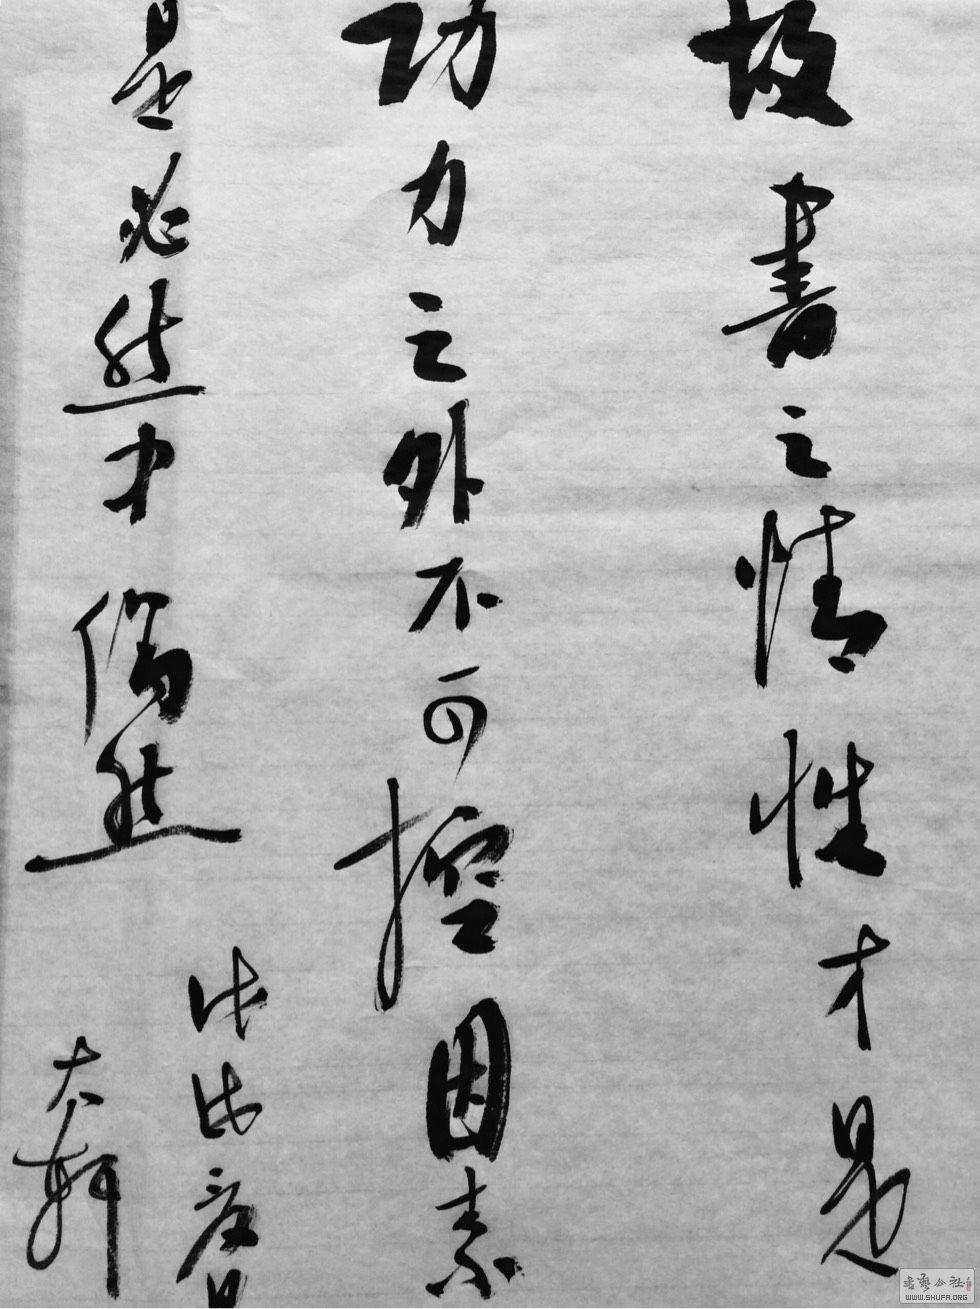 故書之情性才是
功力之外不可控因素
是必然中偶然
大軒
書藝公社
WWW.SHUFA.ORG